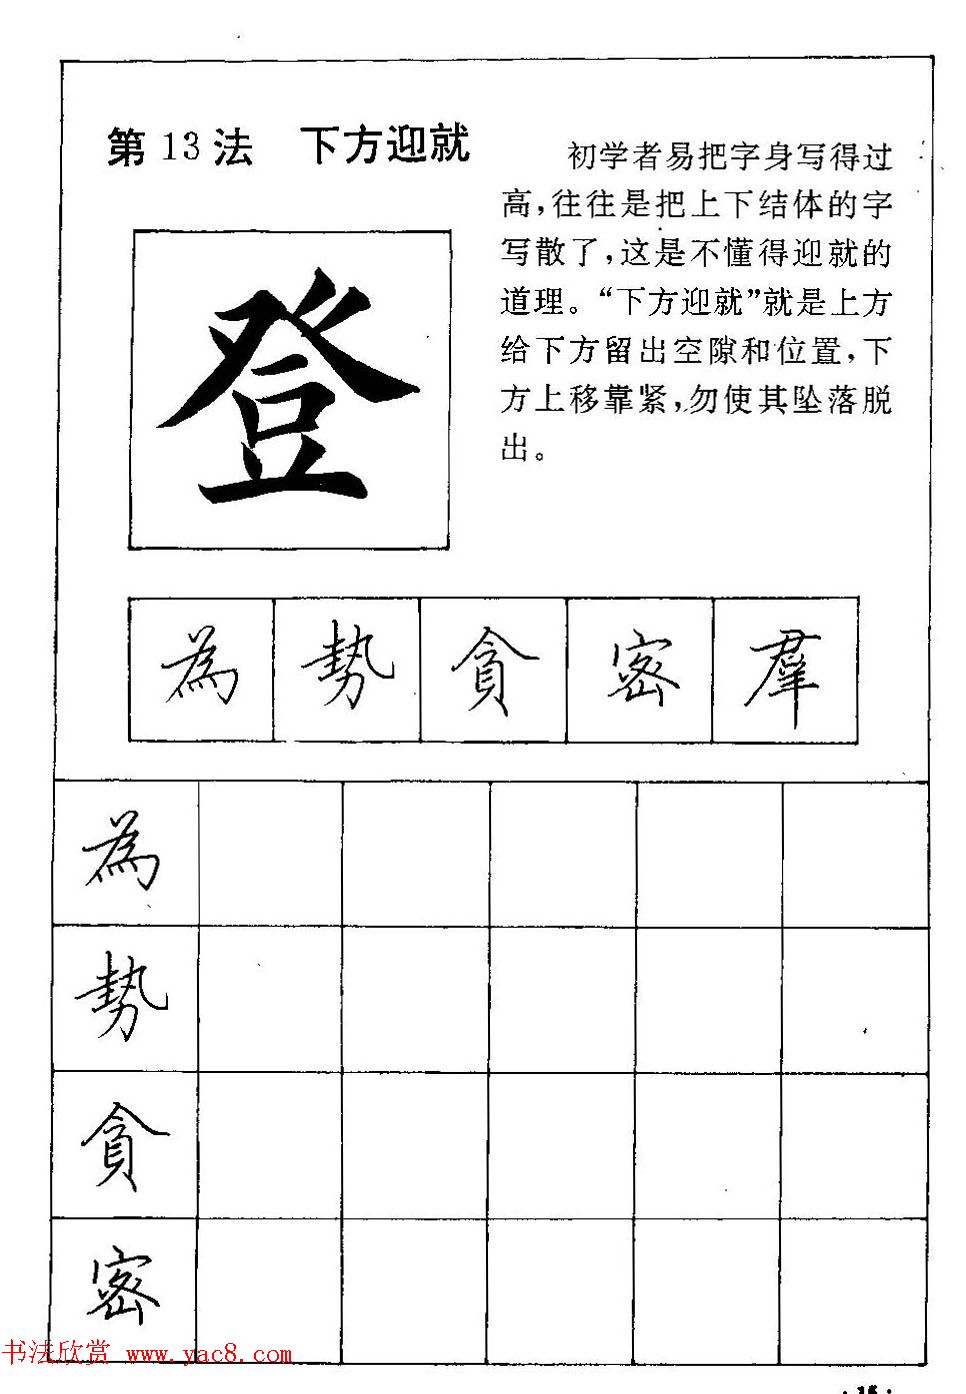 第13法 下方迎就
初学者易把字身写得过
高,往往是把上下结体的字
写散了,这是不懂得迎就的
道理。“下方迎就”就是上方
给下方留出空隙和位置,下
方上移靠紧,勿使其坠落脱
出。
登
為 勢 貪 密 羣
為
勢
貪
密
书法欣赏 www.yac8.com